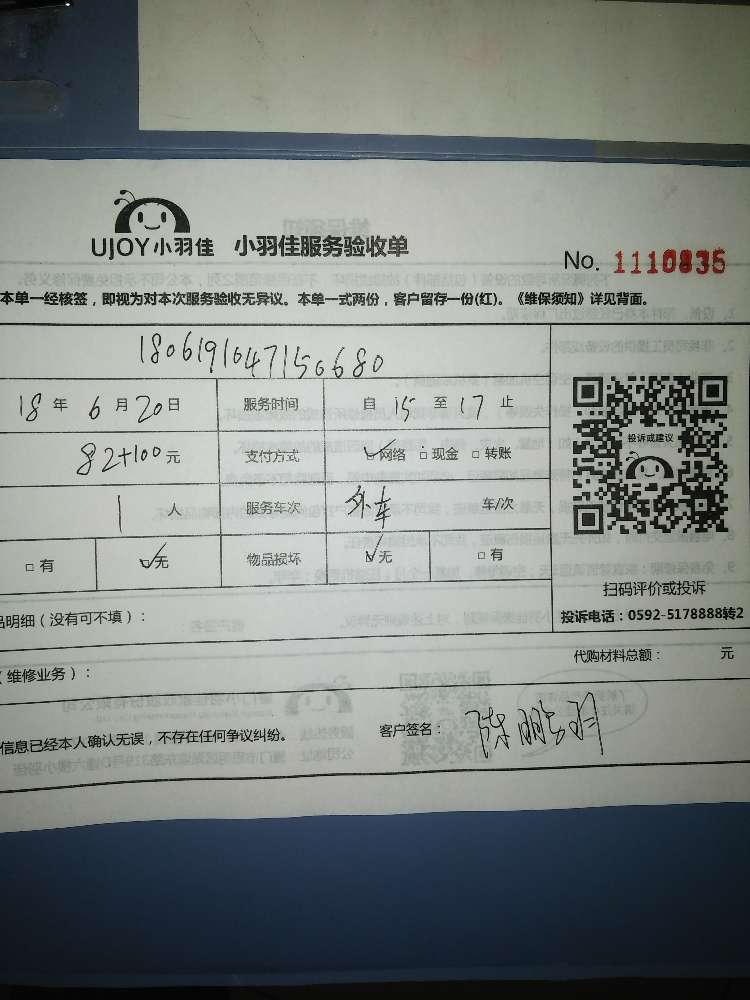 UJOY小羽佳 小羽佳服务验收单
No. 1110835
本单一经核签，即视为对本次服务验收无异议。本单一式两份，客户留存一份(红)。《维保须知》详见背面。
1806191047150680
18 年 6 月 20 日 服务时间 自 15 至 17 止
82+100 元 支付方式 ☑网络 □现金 □转账
投诉或建议
1 人 服务车次 外车 车/次
□有 ☑无 物品损坏 ☑无 □有
扫码评价或投诉
品明细（没有可不填）：
投诉电话：0592-5178888转2
（维修业务）：
代购材料总额： 元
信息已经本人确认无误，不存在任何争议纠纷。
客户签名： 陈鹏羽